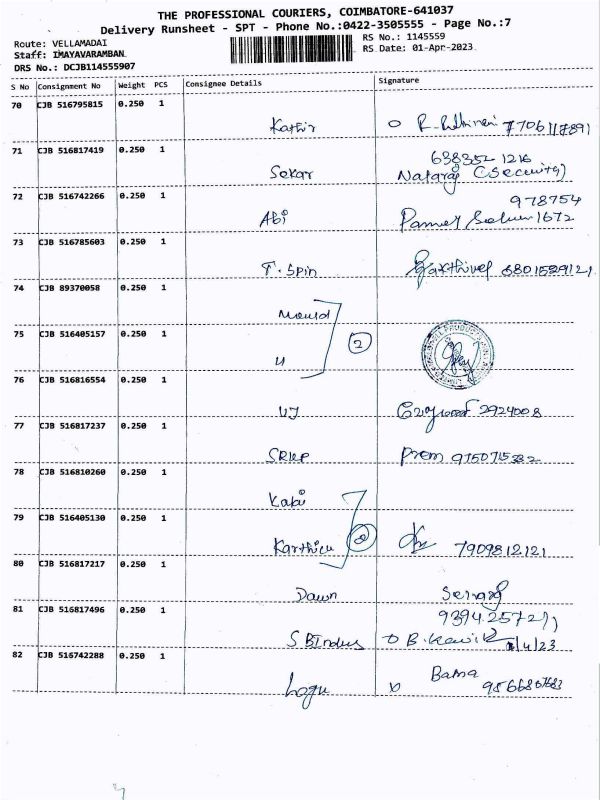 THE PROFESSIONAL COURIERS, COIMBATORE-641037
Delivery Runsheet - SPT - Phone No.:0422-3505555 - Page No.:7
Route: VELLAMADAI
RS No.: 1145559
Staff: IMAYAVARAMBAN
RS Date: 01-Apr-2023
DRS No.: DCJB114555907
S No Consignment No Weight PCS Consignee Details Signature
70 CJB 516795815 0.250 1
Kathir
71 CJB 516817419 0.250 1
638352 1216
Sekar Nataraj (Security)
72 CJB 516742266 0.250 1
978754
Abi 1672
73 CJB 516785603 0.250 1
T. Spin 6801529121
74 CJB 89370058 0.250 1
Mould
75 CJB 516405157 0.250 1
2
76 CJB 516816554 0.250 1
2924008
77 CJB 516817237 0.250 1
SRKP Prem 9750715332
78 CJB 516810260 0.250 1
Kabi
79 CJB 516405130 0.250 1
7909812121
80 CJB 516817217 0.250 1
Dawn
81 CJB 516817496 0.250 1
S B Indus
82 CJB 516742288 0.250 1
Bama
Logu